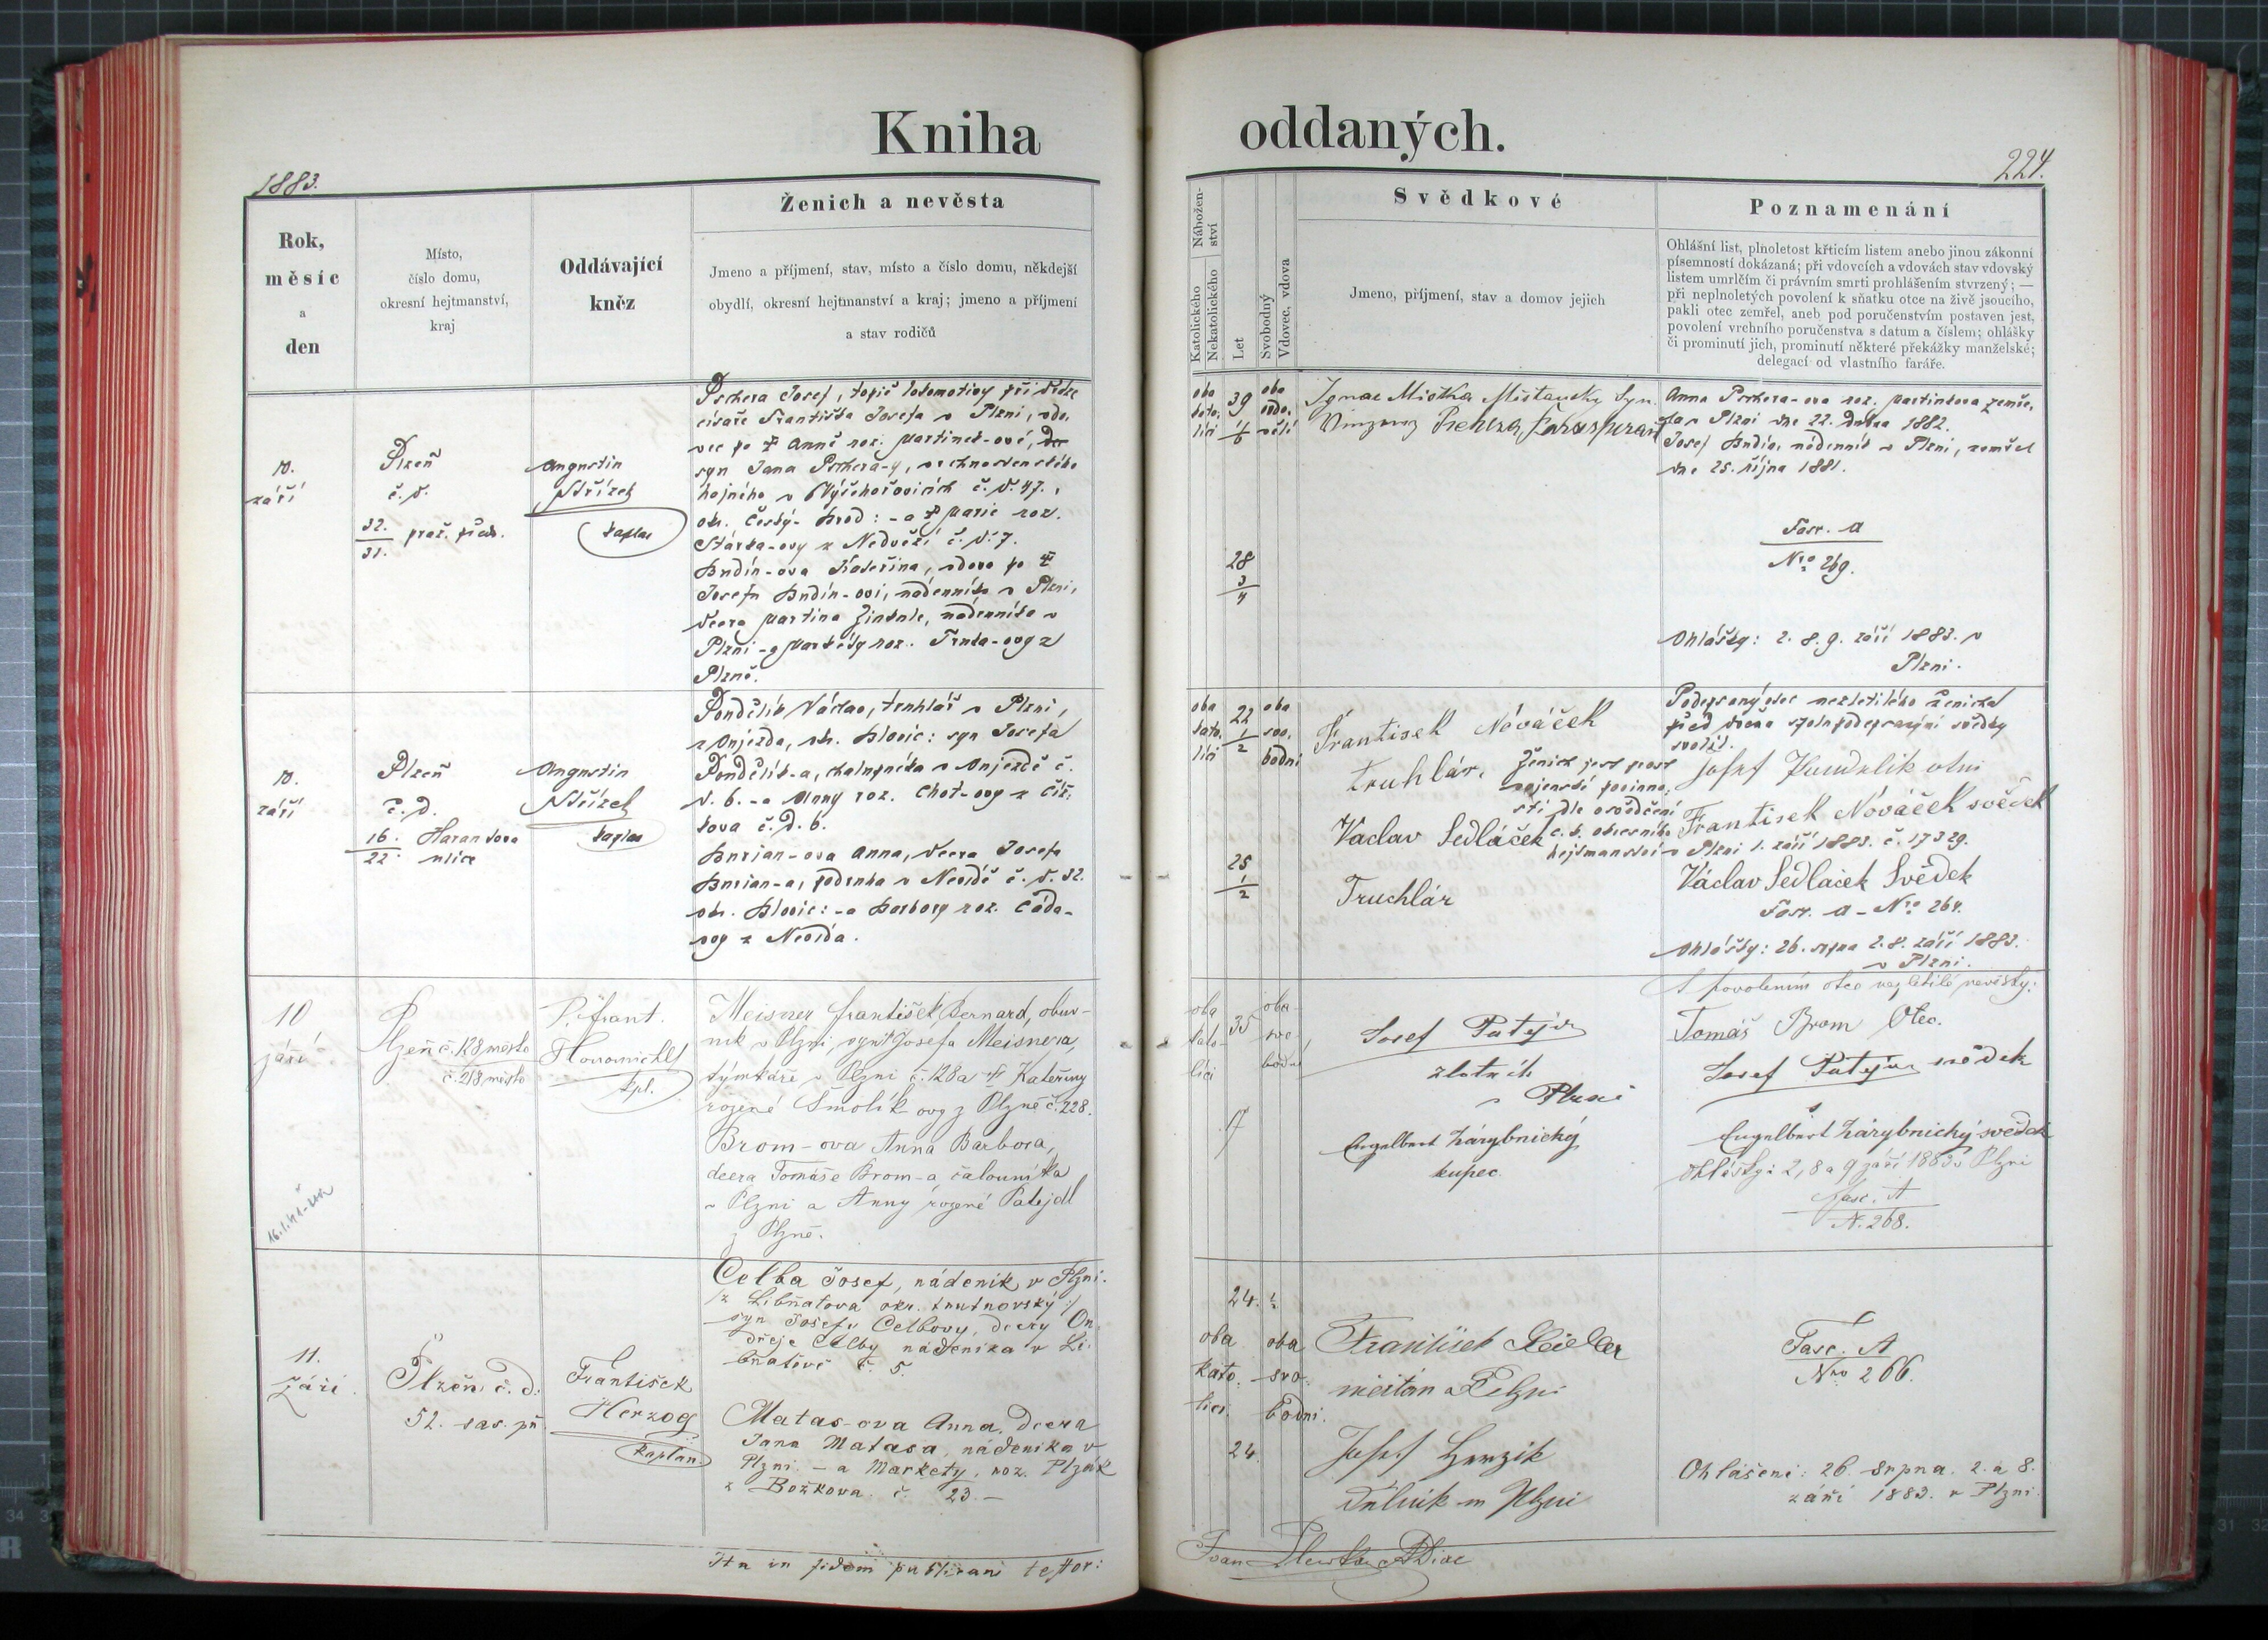 Kniha oddaných.
1883.
224.
Rok,
měsíc
a
den
Místo,
číslo domu,
okresní hejtmanství,
kraj
Oddávající
kněz
Ženich a nevěsta
Jmeno a příjmení, stav, místo a číslo domu, někdejší
obydlí, okresní hejtmanství a kraj; jmeno a příjmení
a stav rodičů
Nábožen-
ství
Katolického
Nekatolického
Let
Svobodný
Vdovec, vdova
Svědkové
Jmeno, příjmení, stav a domov jejich
Poznamenání
Ohlášní list, plnoletost křticím listem anebo jinou zákonní
písemností dokázaná; při vdovcích a vdovách stav vdovský
listem umrlčím či právním smrti prohlášením stvrzený; —
při neplnoletých povolení k sňatku otce na živě jsoucího,
pakli otec zemřel, aneb pod poručenstvím postaven jest,
povolení vrchního poručenstva s datum a číslem; ohlášky
či prominutí jich, prominutí některé překážky manželské;
delegací od vlastního faráře.
10.
září
Plzeň
č. d.
32.
31.
praž. předm.
Augustin
Střízek
kaplan
Pschera Josef, topič lokomotivy při dráze
císaře Františka Josefa v Plzni, vdo-
vec po Anně roz. Martinek-ové,
syn Jana Pschera-y,
hajného v č. d. 47.,
okr. Český-Brod: - a Marie roz.
Stárka-ovy z Nedvězí č. d. 7.
Budín-ova Kateřina, vdova po
Josefu Budín-ovi, nádenníku v Plzni,
dcera Martina nádenníka v
Plzni - a Markéty roz. Trnka-ovy z
Plzně.
oba
kato-
líci
39
1/6
oba
ovdo-
vělí
28
3/4
Ignac Mistka
Anna Pschera-ova roz. Martinkova zemře-
la v Plzni dne 22. 1882.
Josef Budín, nádenník v Plzni, zemřel
dne 25. října 1881.
Fasc. A
Nro 269.
Ohlášky: 2. 8. 9. září 1883. v
Plzni.
10.
září
Plzeň
č. d.
16.
22.
ulice
Augustin
Střízek
kaplan
Pondělík Václav, truhlář v Plzni,
z Oujezda, okr. Blovic: syn Josefa
Pondělík-a, chalupníka v Oujezdě č.
d. 6. - a Anny roz. Choť-ovy z Číž-
kova č. d. 6.
Burian-ova Anna, dcera Josefa
Burian-a, podruha v č. d. 32.
okr. Blovic: - a Barbory roz.
oba
kato-
líci
22
1/2
oba
svo-
bodni
25
1/2
František Nováček
truhlář.
Václav Sedláček
Truchlár
Ženich jest prost
vojenské povinno-
sti dle osvědčení
c. k. okresního
hejtmanství v Plzni 1. září 1883. č. 17329.
Podepsaný otec nezletilého ženicha
před dvěma spolupodepsanými svědky
svolil.
Josef Pondělík otec
František Nováček svědek
Václav Sedláček Svědek
Fasc. A - Nro 264.
Ohlášky: 26. srpna 2. 8. září 1883.
v Plzni.
10
září
Plzeň č. 128 město
č. 218 město
P. Frant.
kpl.
Meisner František Bernard, obuv-
ník v Plzni, syn Josefa Meisnera,
v Plzni č. 128 a Kateřiny
rozené Smolík-ovy z Plzně č. 228.
Brom-ova Anna Barbora,
dcera Tomáše Brom-a, čalouníka
v Plzni a Anny rozené Patejdl
z Plzně.
oba
kato-
líci
35
oba
svo-
bodni
17
Josef
zlatník
v Plzni
Engelbert Zárybnický
kupec
S povolením otce nezletilé nevěsty:
Tomáš Brom Otec.
Josef svědek
Engelbert Zárybnický svědek
Ohlášky: 2, 8 a 9 září 1883 v Plzni
Fasc. A
N. 268.
11.
září
Plzeň č. d.
52. sas. př.
František
Herzog
kaplan
Celba Josef, nádeník v Plzni.
/z Libňatova okr. trutnovský:/
syn Josefy Celbovy, dcery On-
dřeje Celby nádenika v Li-
bňatově č. 5.
Matas-ova Anna, dcera
Jana Matasa, nádenika v
Plzni. - a Markety, roz. Plzák
z Božkova. č. 23. —
24. 1/2
oba
kato-
líci.
oba
svo-
bodni.
24
František
měštan v Plzni
Josef
dělník v Plzni
Fasc. A
Nro 266.
Ohlášení: 26. srpna. 2. a 8.
září 1883. v Plzni.
Ita in fidem publicam testor: